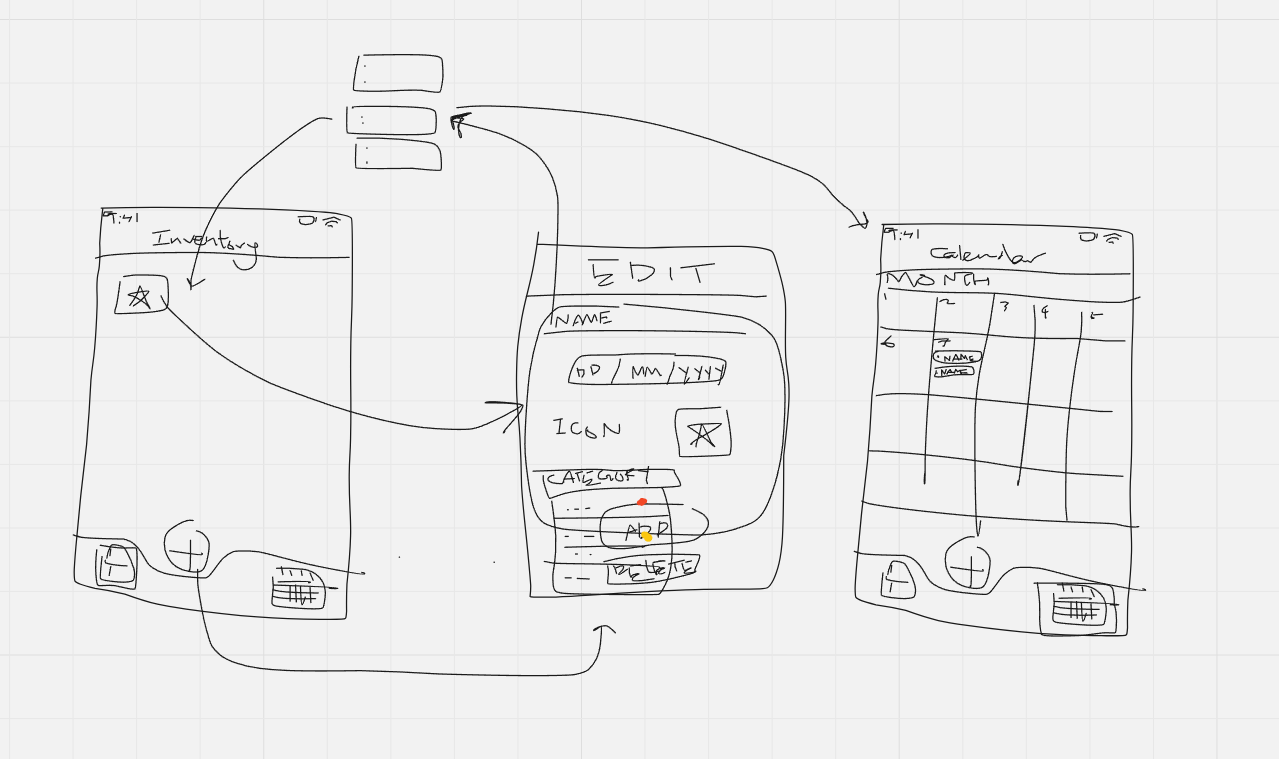 9:41
Inventory
EDIT
NAME
DD / MM / YYYY
ICON
CATEGORY
ADD
DELETE
9:41
Calendar
MONTH
1 2 3 4 5
6 7
NAME
NAME